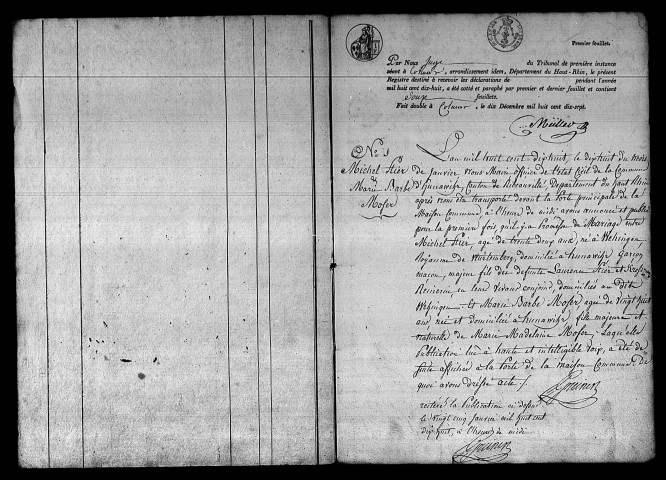 Premier feuillet.
Par Nous Juge du Tribunal de première instance
séant à Colmar, arrondissement idem, Département du Haut-Rhin, le présent
Registre destiné à recevoir les déclarations de pendant l'année
mil huit cent dix-huit, a été coté et paraphé par premier et dernier feuillet et contient
Douze feuillets.
Fait double à Colmar, le dix Décembre mil huit cent dix-sept.
Müller
N.º 1
Michel Fier
&
Marie Barbe
Moser
L'an mil huit cent dix huit, le dix huit du mois
de Janvier, nous Maire officier de l'Etat Civil de la Commune
d'hunawihr, Canton de Ribeauvillé, Département du haut Rhin
après nous être transporté devant la Porte principale de la
Maison Commune, à l'heure de midi avons annoncé et publié
pour la première fois, qu'il y a Promesse de Mariage entre
Michel Fier, agé de trente deux ans, né à Wehingen
Royaume de Wurtemberg, domicilié à hunawihr Garçon
macon, majeur fils des defunts Laurent Fier et
en leur vivant conjoints, domiciliés au dit
Wehingen. Et Marie Barbe Moser agée de vingt huit
ans, née et domiciliée à hunawihr fille majeure et
naturelle de Marie Madelaine Moser. Laquelle
Publication lue à haute et intelligible voix, a été de
suite affichée à la Porte de la maison Commune. De
quoi avons dressé acte.
réitéré la Publication ci dessus
le vingt cinq Janvier mil huit cent
dix huit, à l'heure de midi